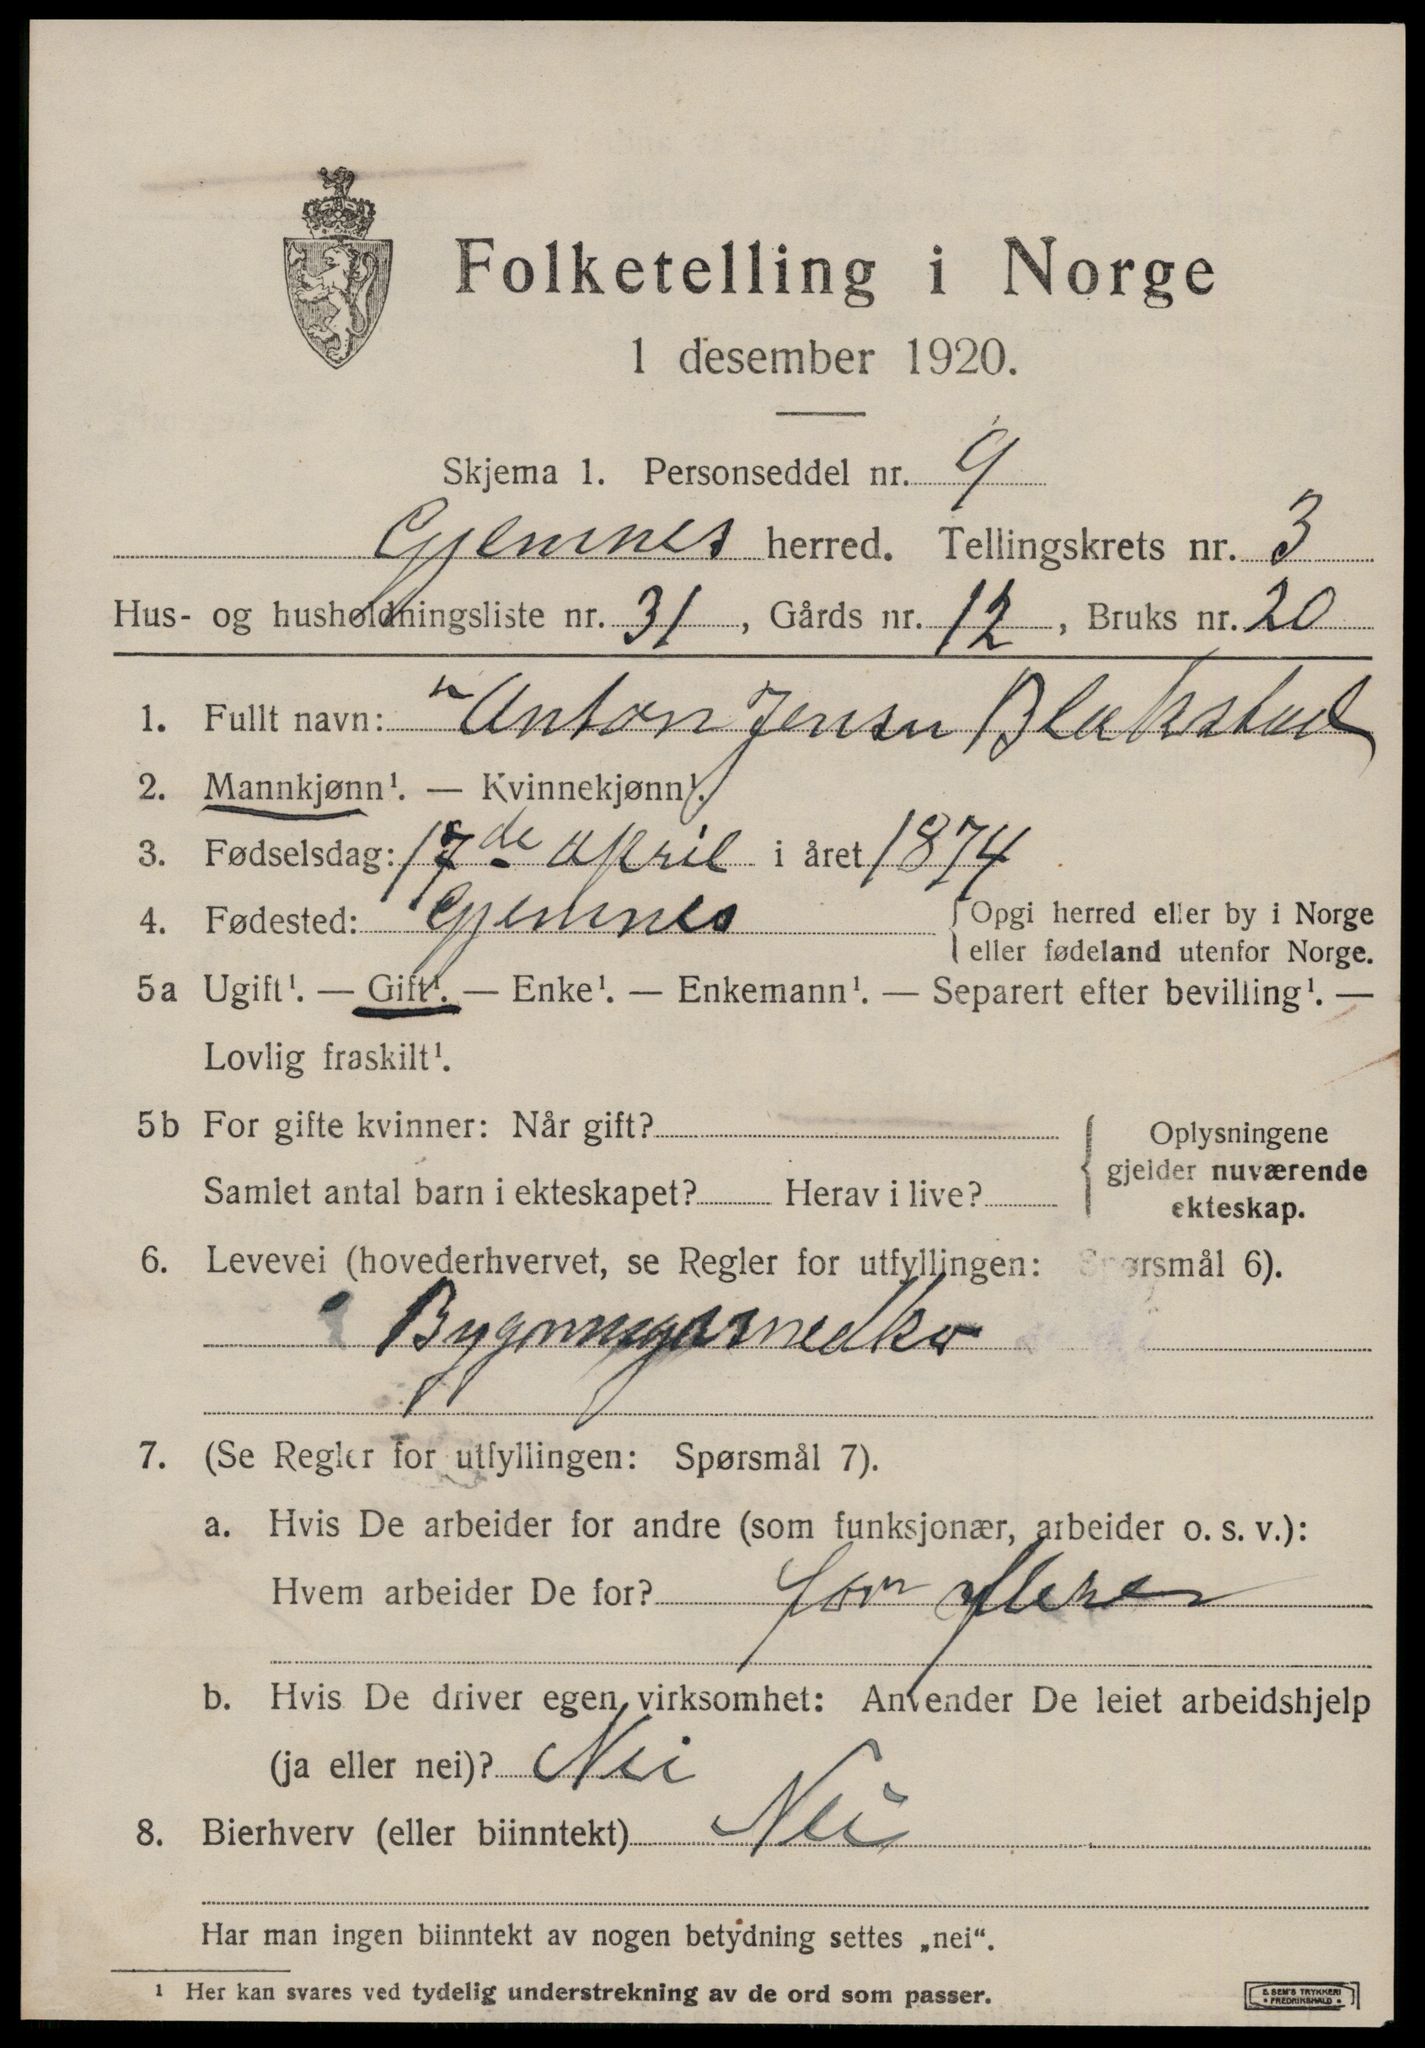 Folketelling i Norge
1 desember 1920.
Skjema 1. Personseddel nr. 9
Gjemnes herred. Tellingskrets nr. 3
Hus- og husholdningsliste nr. 31, Gårds nr. 12, Bruks nr. 20
1. Fullt navn: Anton Jensen Blakstad
2. Mannkjønn¹. — Kvinnekjønn¹.
3. Fødselsdag: 17de april i året 1874
4. Fødested: Gjemnes {Opgi herred eller by i Norge
eller fødeland utenfor Norge.
5a Ugift¹. — Gift¹. — Enke¹. — Enkemann¹. — Separert efter bevilling¹. —
Lovlig fraskilt¹.
5b For gifte kvinner: Når gift?
Samlet antal barn i ekteskapet? Herav i live?
{ Oplysningene
gjelder nuværende
ekteskap.
6. Levevei (hovederhvervet, se Regler for utfyllingen: Spørsmål 6).
7. (Se Regler for utfyllingen: Spørsmål 7).
a. Hvis De arbeider for andre (som funksjonær, arbeider o. s. v.):
Hvem arbeider De for? for flere
b. Hvis De driver egen virksomhet: Anvender De leiet arbeidshjelp
(ja eller nei)? Nei
8. Bierhverv (eller biinntekt) Nei
Har man ingen biinntekt av nogen betydning settes „nei“.
¹ Her kan svares ved tydelig understrekning av de ord som passer.
E. SEM'S TRYKKERI
• FREDRIKSHALD •